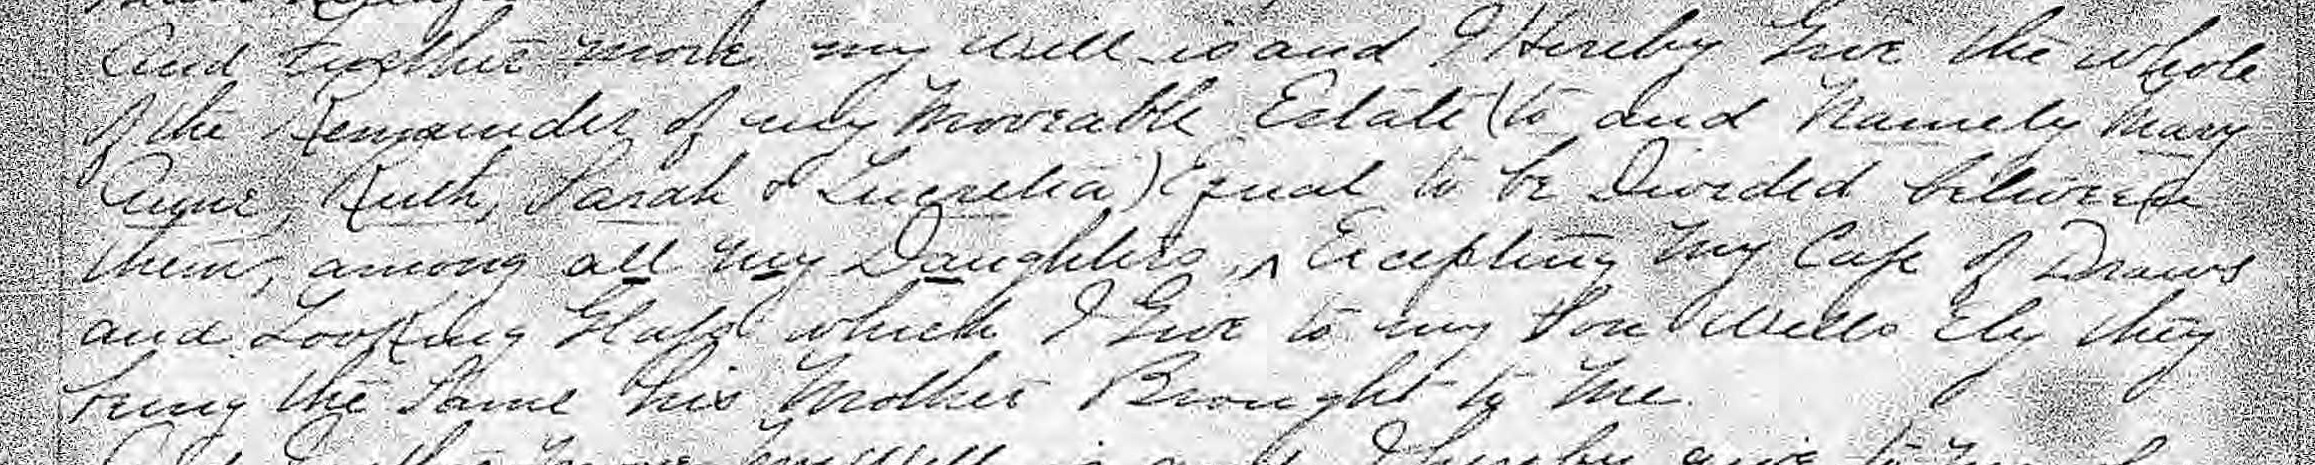 And further more my will is and I Hereby Give the whole
of the Remainder of my Moveable Estate (to and Namely Mary
Ruth, Sarah & Lucretia) Equal to be Divided between
them, among all my Daughters, ^ Excepting my Case of Draws
and Looking Glass which I Give to my Son Wells Ely they
being the Same his Mother Brought to Me.
I hereby give to